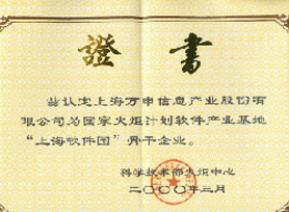 證書
兹认定上海万申信息产业股份有
限公司为国家火炬计划软件产业基地
“上海软件园”骨干企业。
科学技术部火炬中心
二〇〇〇年三月